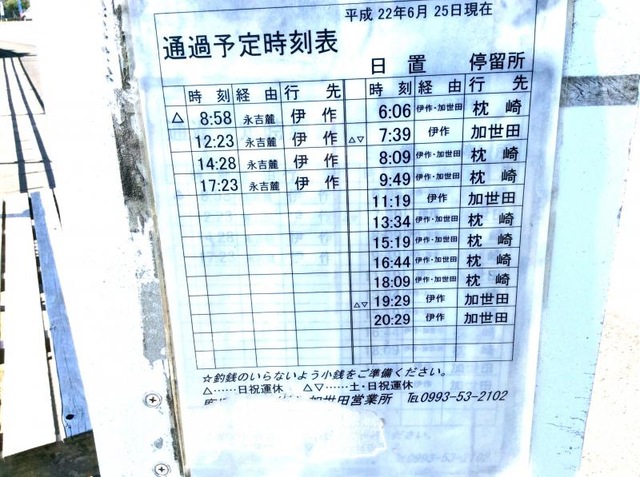 平成 22年6月 25日現在
通過予定時刻表
日 置 停留所
時 刻 経 由 行 先 時 刻 経 由 行 先
△ 8:58 永吉麓 伊 作 6:06 伊作・加世田 枕 崎
12:23 永吉麓 伊 作 △▽ 7:39 伊作 加世田
14:28 永吉麓 伊 作 8:09 伊作・加世田 枕 崎
17:23 永吉麓 伊 作 9:49 伊作・加世田 枕 崎
11:19 伊作 加世田
13:34 伊作・加世田 枕 崎
15:19 伊作・加世田 枕 崎
16:44 伊作・加世田 枕 崎
18:09 伊作・加世田 枕 崎
△▽ 19:29 伊作 加世田
20:29 伊作 加世田
☆釣銭のいらないよう小銭をご準備ください。
△……日祝運休 △▽……土・日祝運休
加世田営業所 ℡0993-53-2102
ださい。
℡0993-53-2102